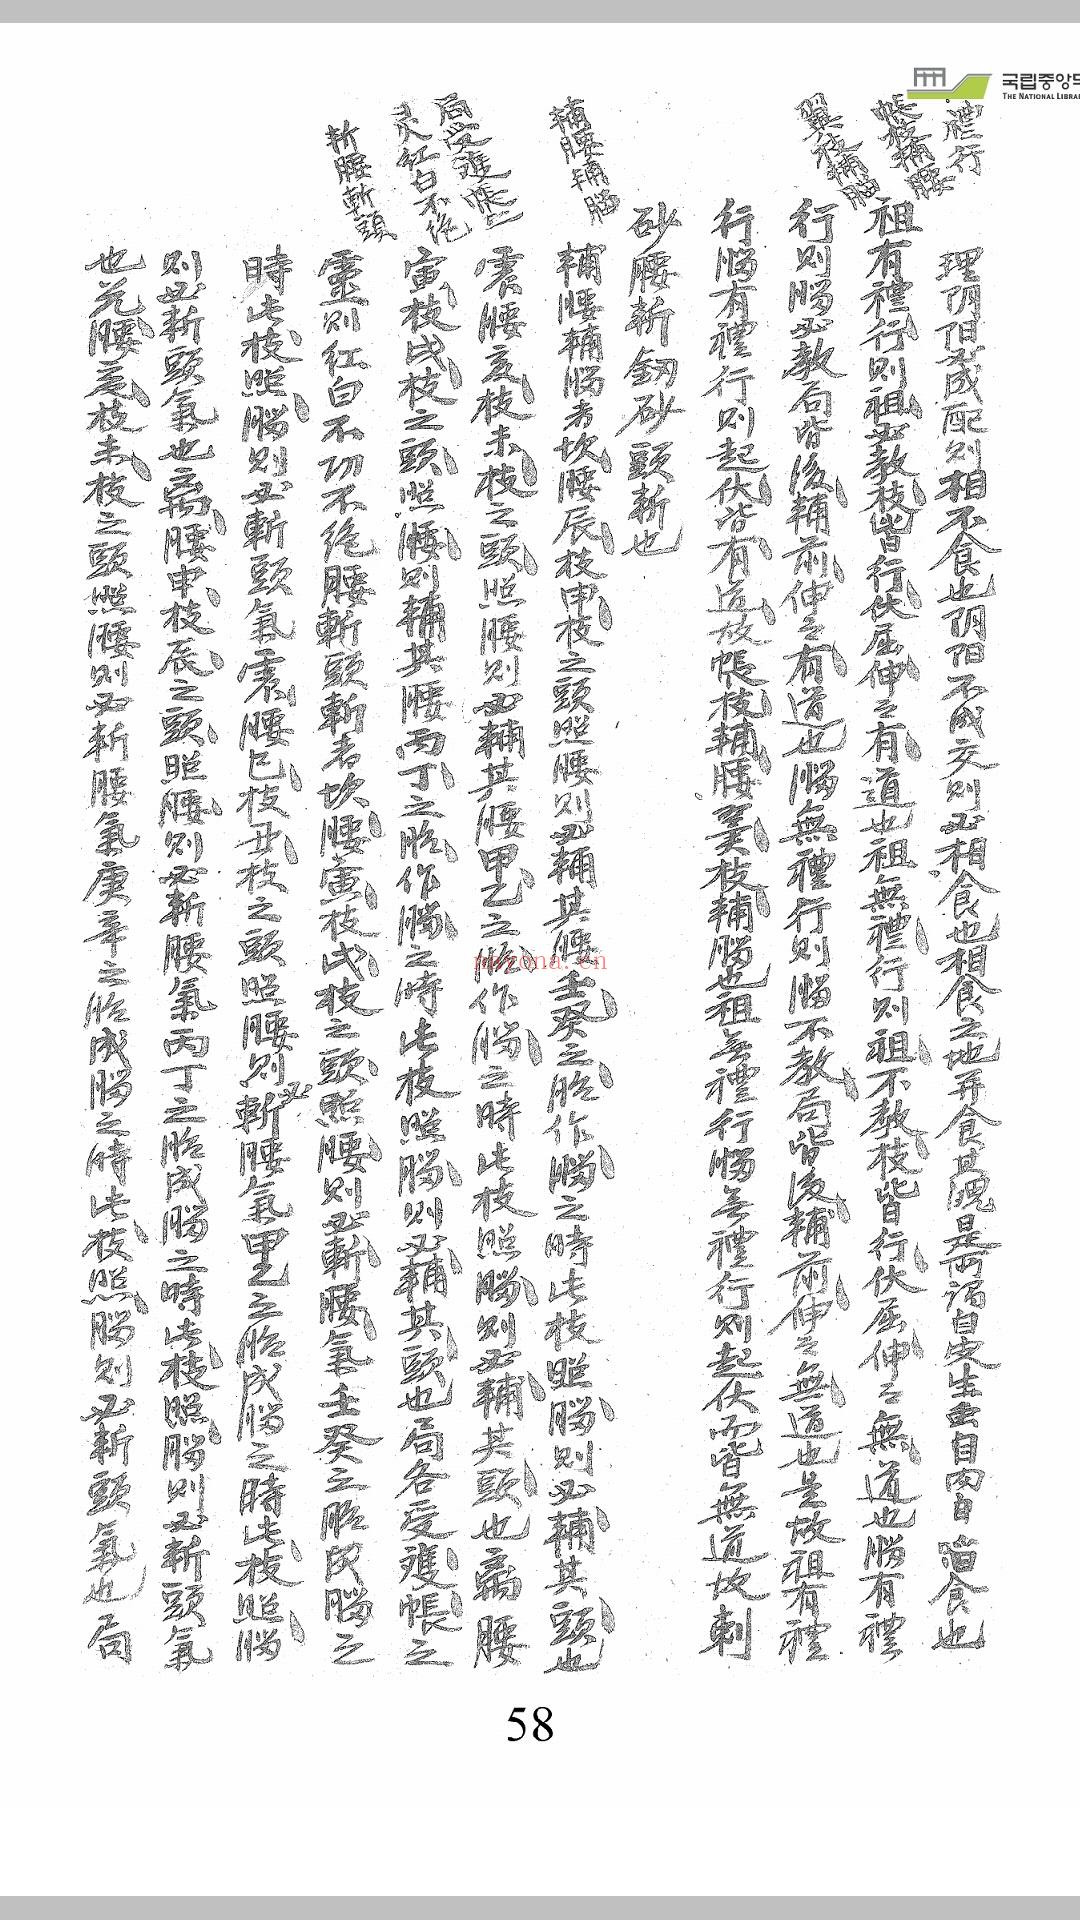 국립중앙도
THE NATIONAL LIBRA
禮行
帳枝輔腰
翼枝輔腦
輔腰輔腦
局受進帳之
灵紅白不絶
斬腰斬頭
理阴阳不成配則相不食也阴阳不成交則必相食也相食之地並食其塊是所謂自
祖有禮行則祖必教枝皆行伏屈伸之有道也祖無禮行則祖不教枝皆行伏屈伸之無道也腦有禮
行則腦必教局皆後輔前伸之有道也腦無禮行則腦不教局皆後輔前伸之無道也是故祖有禮
行腦有禮行則起伏皆有道故帳枝輔腰翼枝輔腦也祖無禮行腦無禮行則起伏而皆無道故刺
砂腰斬釼砂頭斬也
輔腰輔腦者坎腰辰枝申枝之頭照腰則必輔其腰壬癸之脈作腦之時此枝照腦則必輔其頭也
震腰亥枝未枝之頭照腰則必輔其腰甲乙之脈作腦之時此枝照腦則必輔其頭也离腰
寅枝戌枝之頭照腰則輔其腰丙丁之脈作腦之時此枝照腦則必輔其頭也局各受進帳之
靈則紅白不切不絶腰斬頭斬者坎腰寅枝戌枝之頭照腰則必斬腰氣壬癸之脈成腦之
時此枝照腦則必斬頭氣震腰巳枝丑枝之頭照腰則必斬腰氣甲乙之脈成腦之時此枝照腦
則必斬頭氣也离腰申枝辰之頭照腰則必斬腰氣丙丁之脈成腦之時此枝照腦則必斬頭氣
也兑腰亥枝未枝之頭照腰則必斬腰氣庚辛之脈成腦之時此枝照腦則必斬頭氣也局
nwyona.cn
58